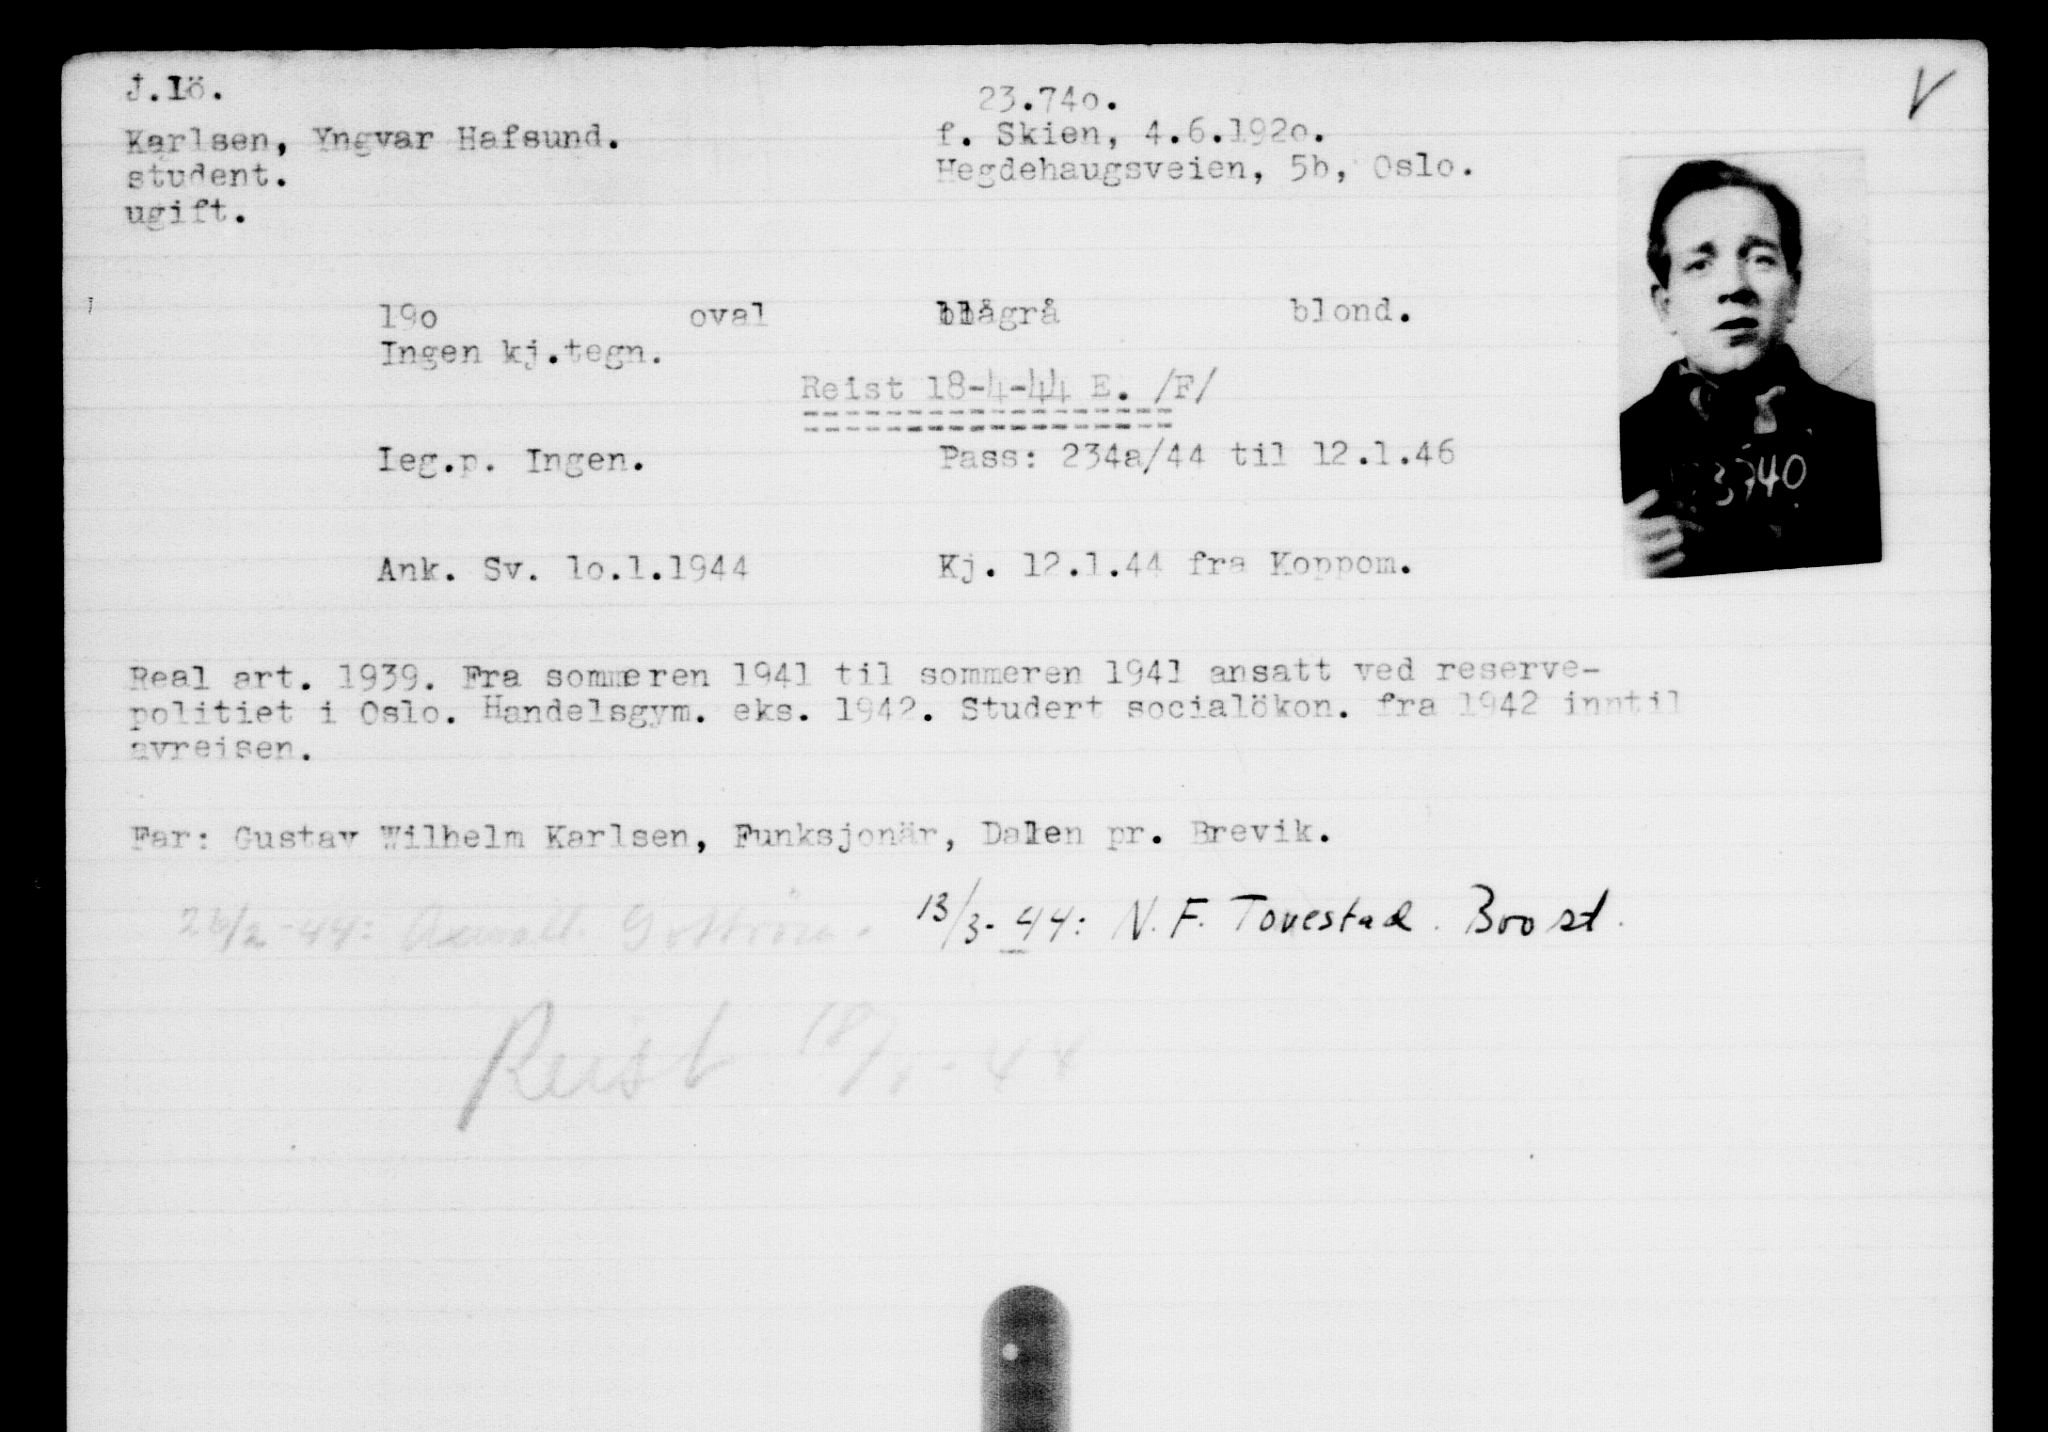 J.lö.
23.74o.
V
Karlsen, Yngvar Hafsund.
f. Skien, 4.6.192o.
student.
Hegdehaugsveien, 5b, Oslo.
ugift.
19o oval blågrå blond.
Ingen kj.tegn.
Reist 18-4-44 E. /F/
Leg.p. Ingen.
Pass: 234a/44 til 12.1.46
3740
Ank. Sv. lo.1.1944
Kj. 12.1.44 fra Koppom.
Real art. 1939. Fra sommeren 1941 til sommeren 1941 ansatt ved reserve-
politiet i Oslo. Handelsgym. eks. 1942. Studert socialökon. fra 1942 inntil
avreisen.
Far: Gustav Wilhelm Karlsen, Funksjonär, Dalen pr. Brevik.
26/2-44:
13/3-44: N. F. Tovestad. Boost.
Reist 18/4-44